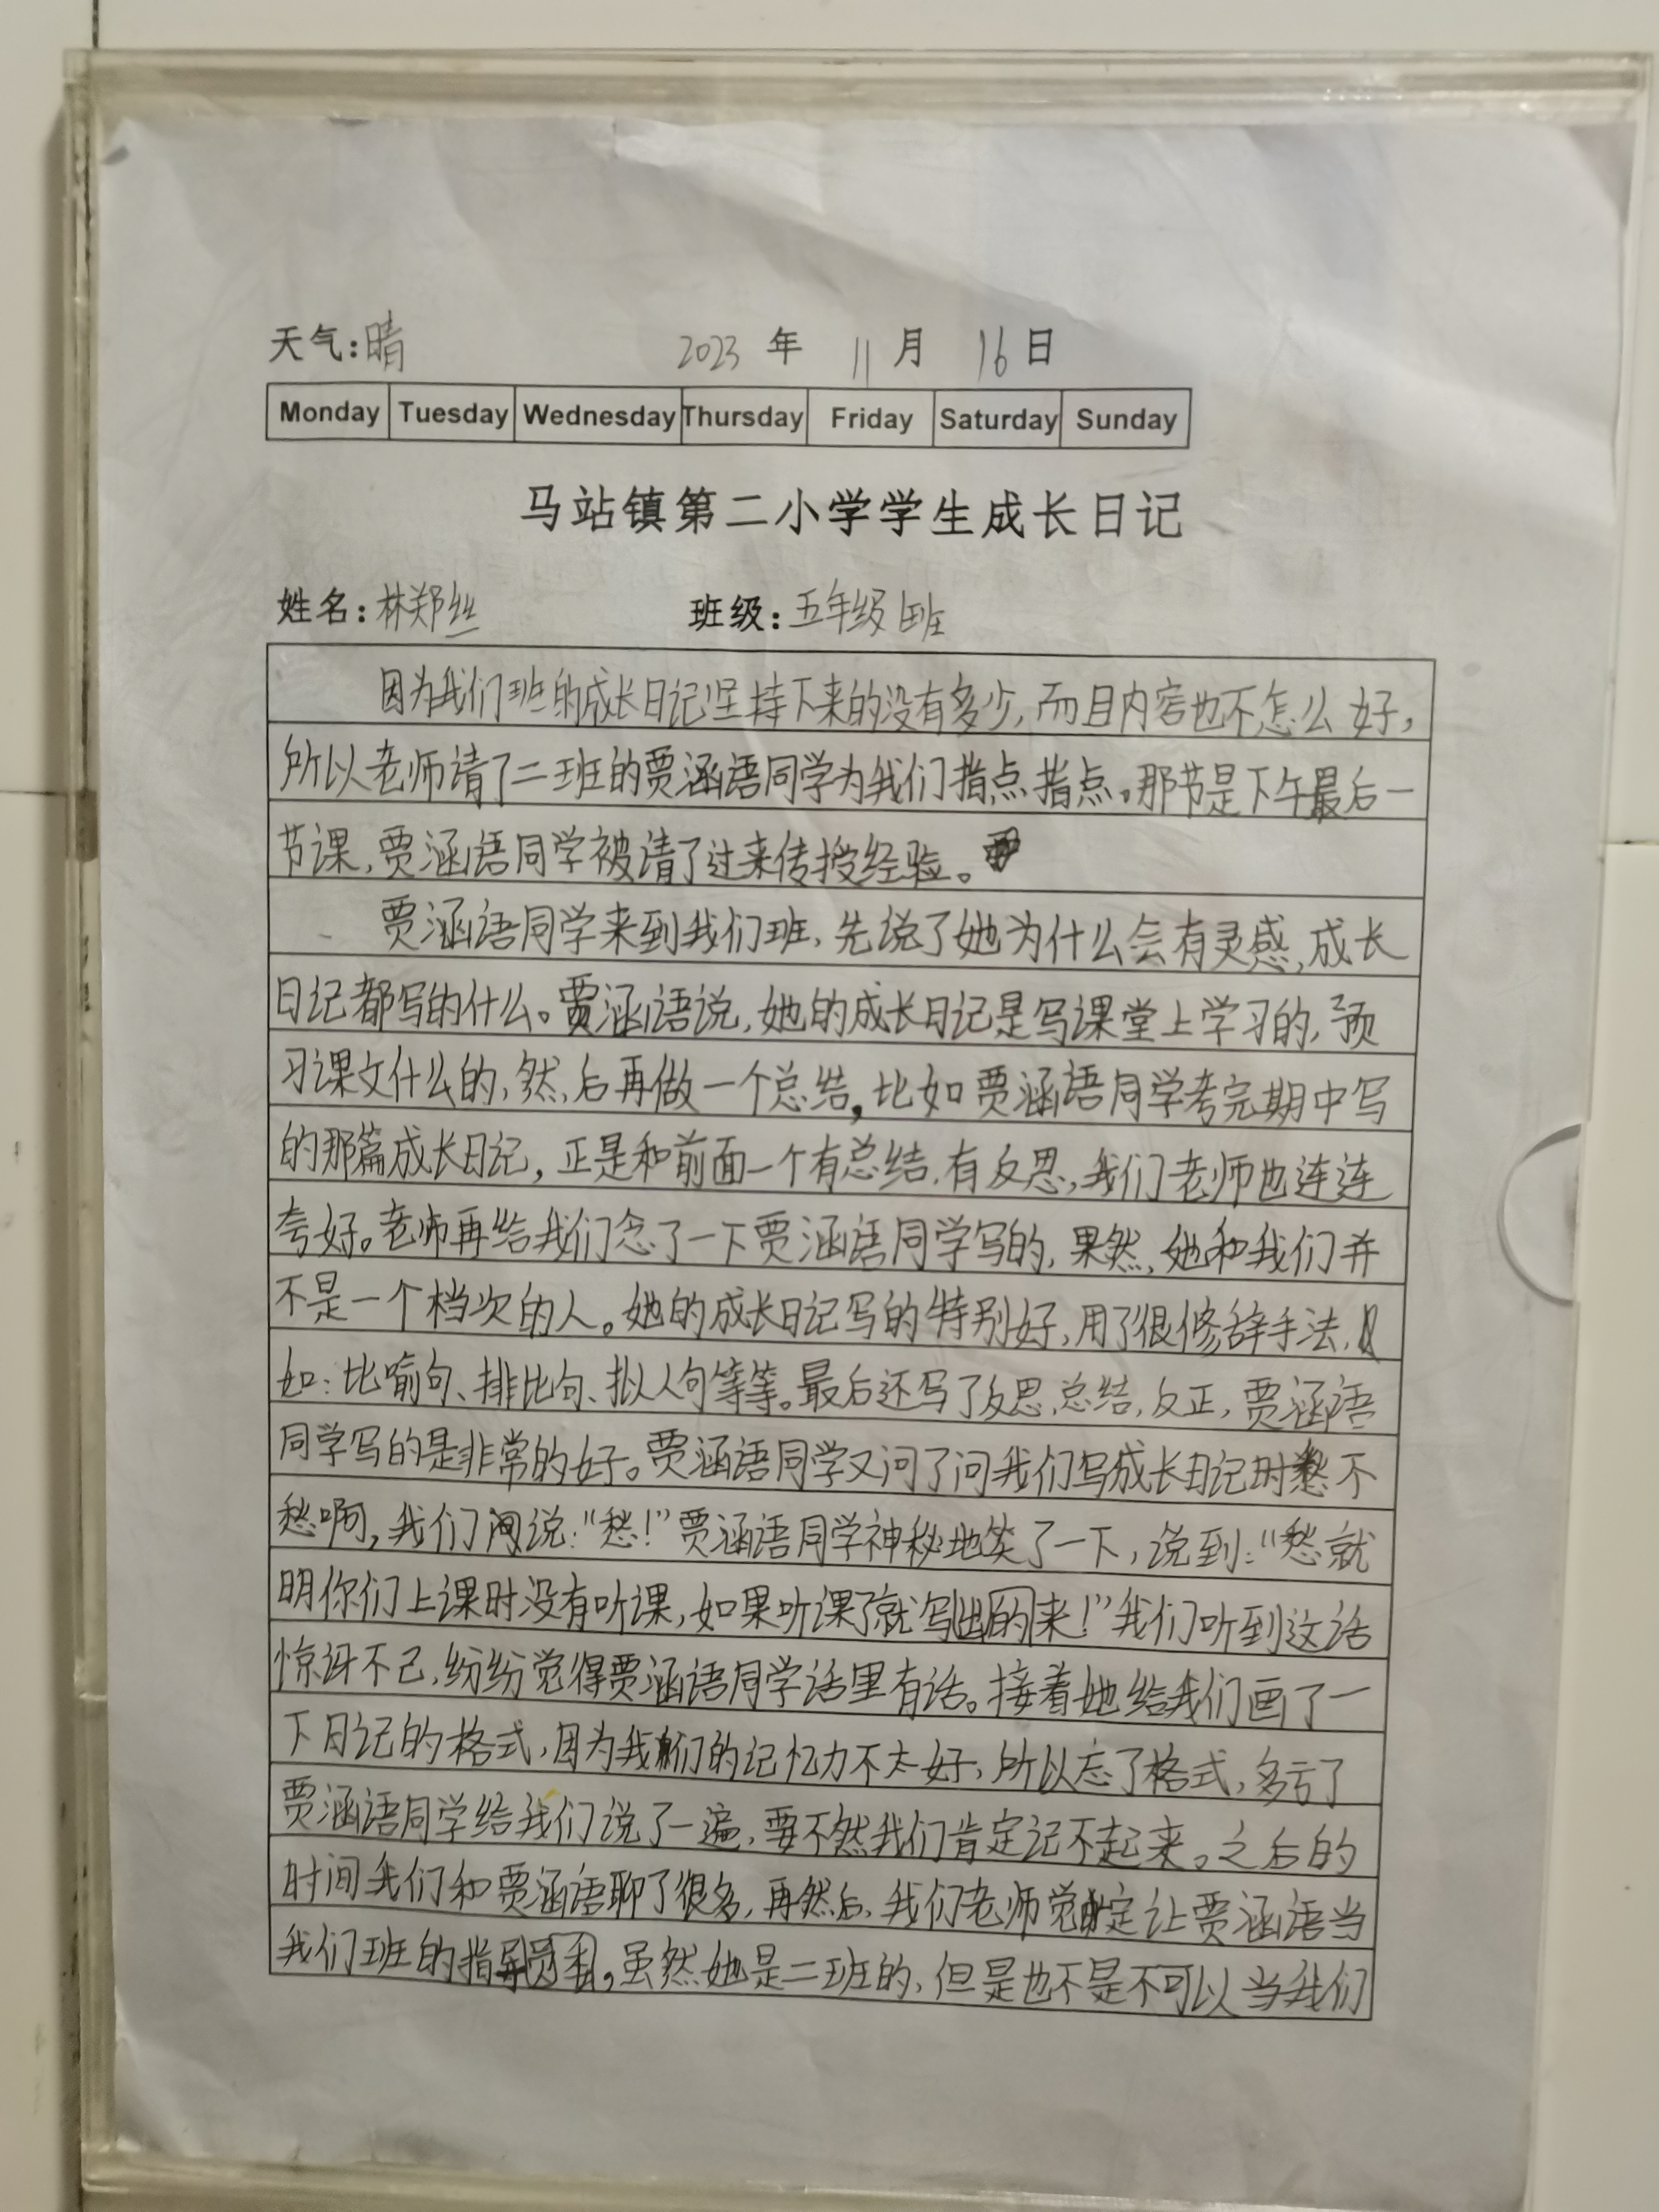 天气:晴 2023 年 11 月 16 日
Monday Tuesday Wednesday Thursday Friday Saturday Sunday
马站镇第二小学学生成长日记
姓名:林郑丝 班级:五年级1班
因为我们班的成长日记坚持下来的没有多少,而且内容也不怎么好,
所以老师请了二班的贾涵语同学为我们指点指点。那节是下午最后一
节课,贾涵语同学被请了过来传授经验。
贾涵语同学来到我们班,先说了她为什么会有灵感,成长
日记都写的什么。贾涵语说,她的成长日记是写课堂上学习的,预
习课文什么的,然后再做一个总结,比如贾涵语同学考完期中写
的那篇成长日记,正是和前面一个有总结,有反思,我们老师也连连
夸好。老师再给我们念了一下贾涵语同学写的,果然,她和我们并
不是一个档次的人。她的成长日记写的特别好,用了很修辞手法,
如:比喻句、排比句、拟人句等等。最后还写了反思,总结,反正,贾涵语
同学写的是非常的好。贾涵语同学又问了问我们写成长日记时愁不
愁啊,我们说:“愁!”贾涵语同学神秘地笑了一下,说到:“愁就
明你们上课时没有听课,如果听课了就写出的来!”我们听到这话
惊讶不已,纷纷觉得贾涵语同学话里有话。接着她给我们画了一
下日记的格式,因为我们的记忆力不太好,所以忘了格式,多亏了
贾涵语同学给我们说了一遍,要不然我们肯定记不起来。之后的
时间我们和贾涵语聊了很多,再然后,我们老师觉定让贾涵语当
我们班的指导员,虽然她是二班的,但是也不是不可以当我们